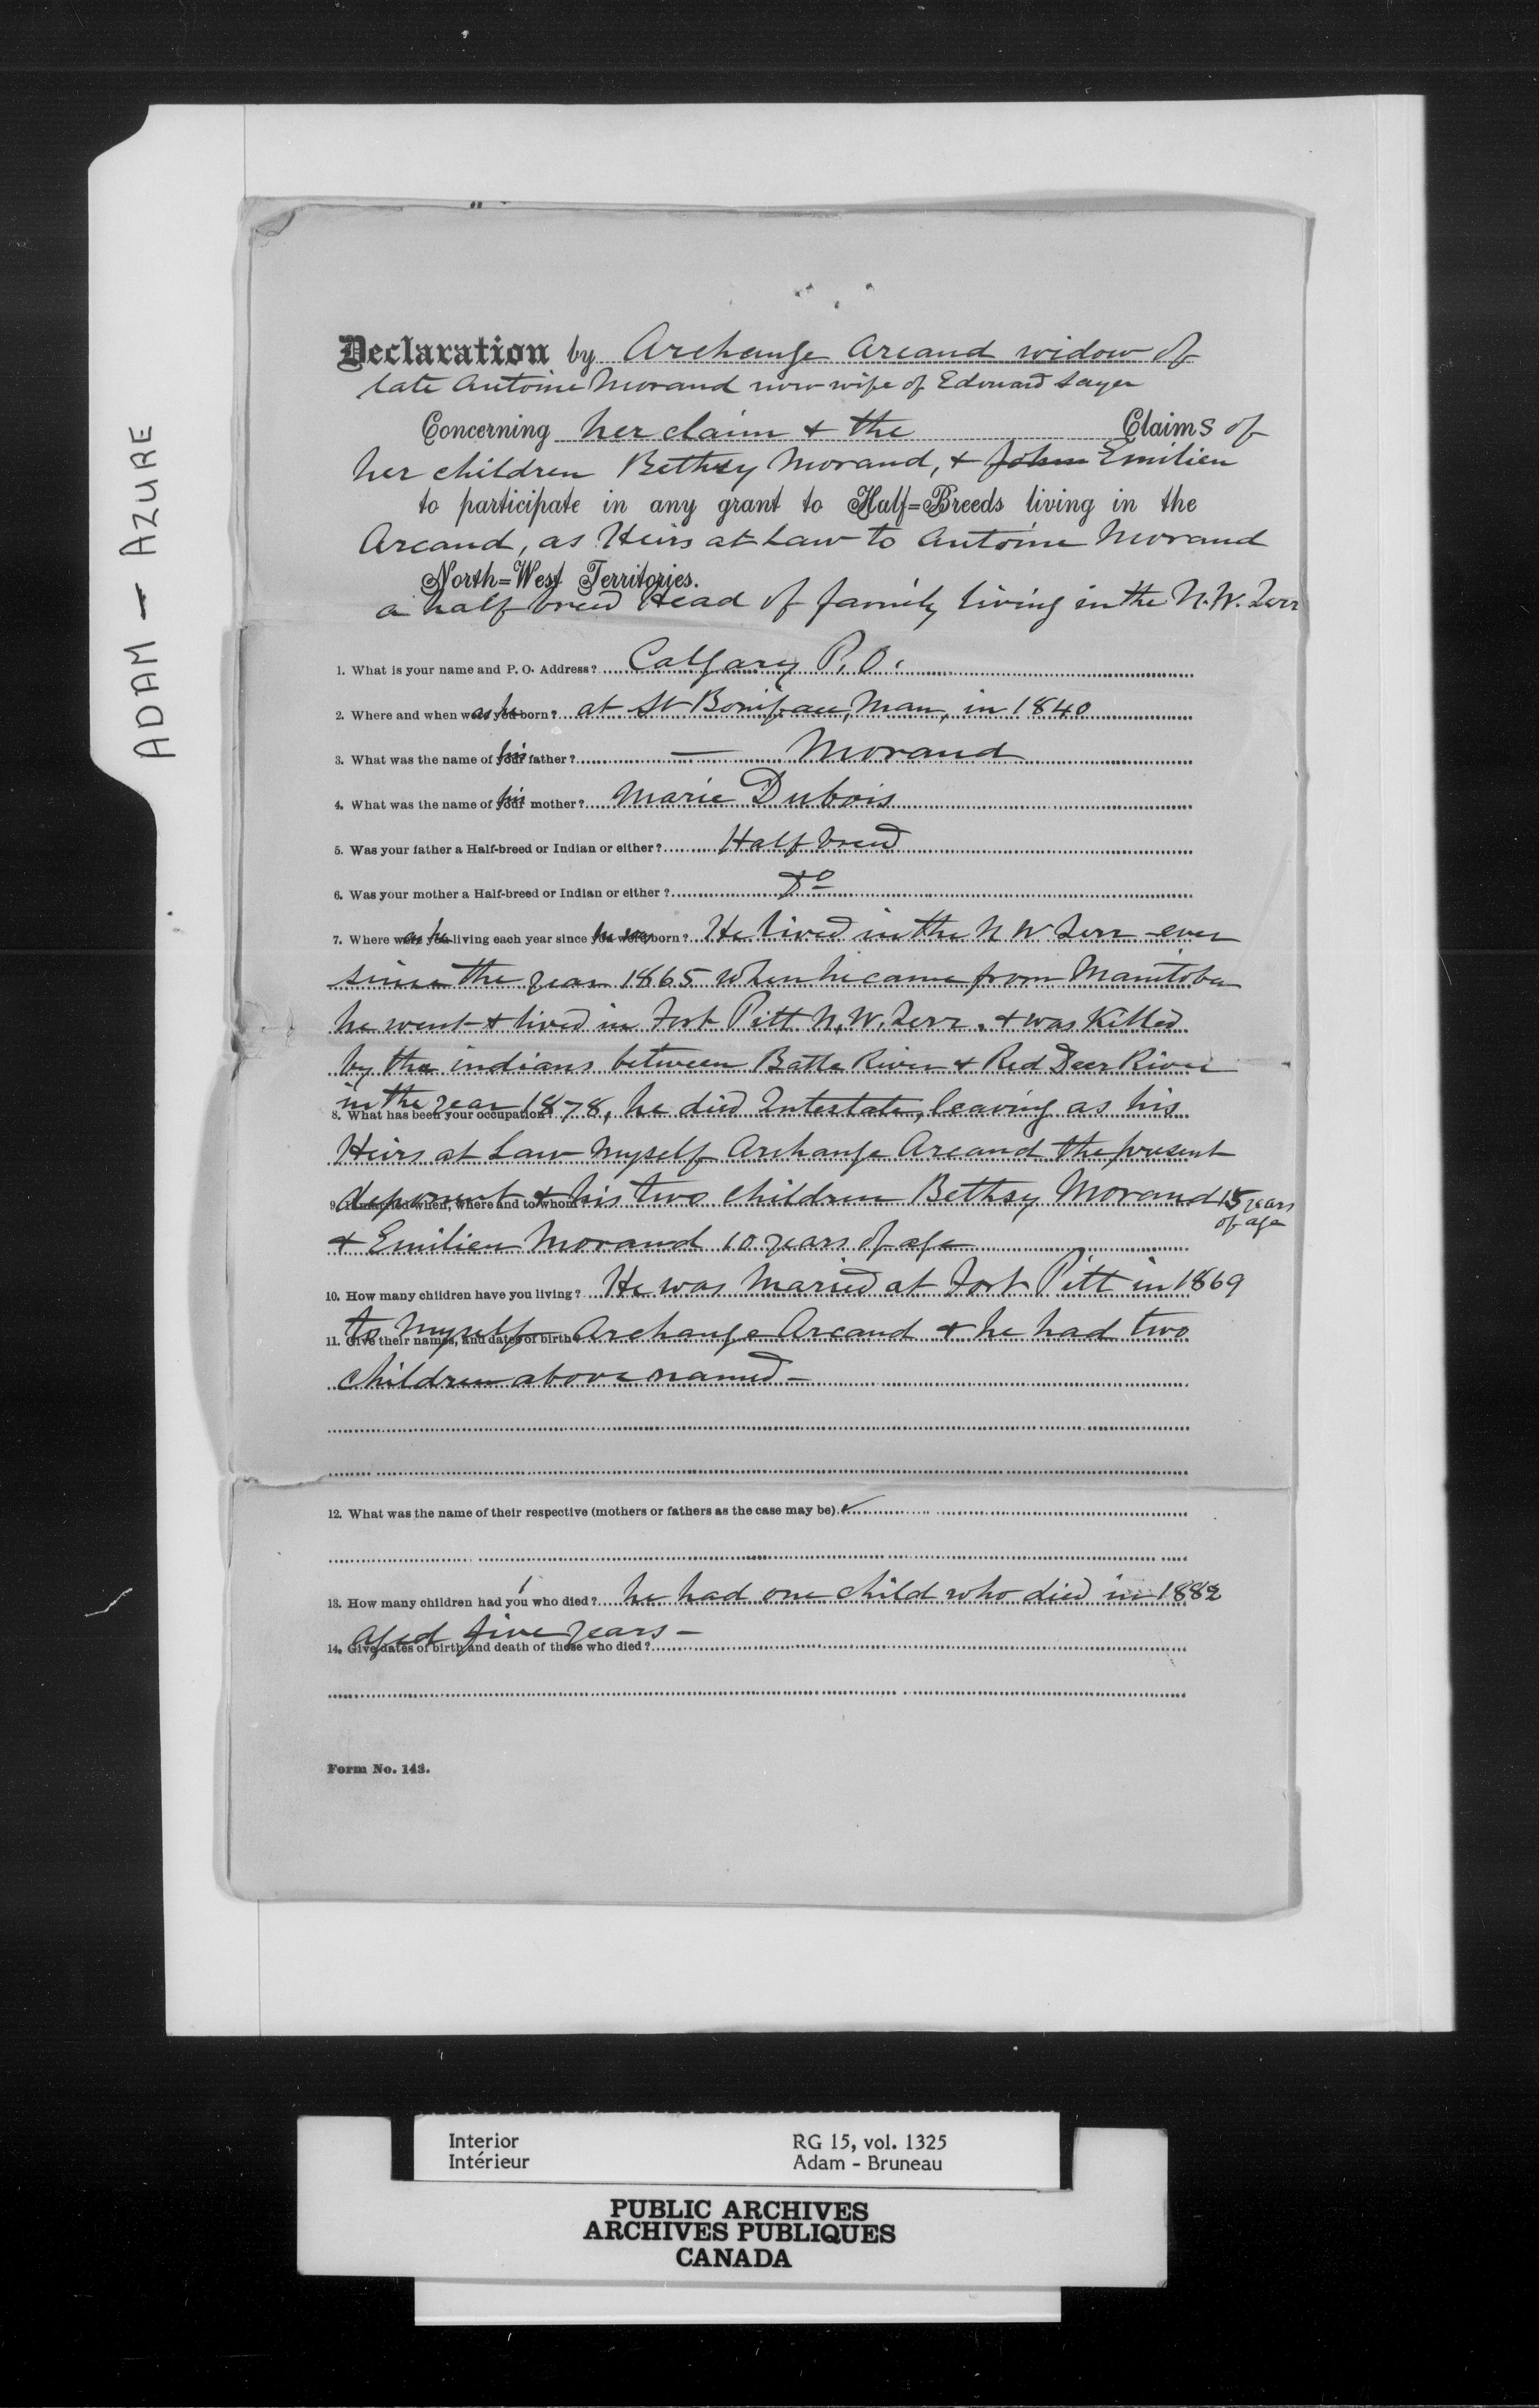 ADAM — AZURE
Declaration by Archange Arcand widow of
late Antoine Morand now wife of Edouard Sayer
Concerning her claim & the Claims of
her children Bethsy Morand, & John Emilien
to participate in any grant to Half=Breeds living in the
Arcand, as Heirs at Law to Antoine Morand
North=West Territories.
a half breed Head of family living in the N.W. Terr
1. What is your name and P. O. Address? Calgary P.O.
2. Where and when was he born? at St Boniface, Man, in 1840
3. What was the name of his father? — Morand
4. What was the name of his mother? Marie Dubois
5. Was your father a Half-breed or Indian or either? Half breed
6. Was your mother a Half-breed or Indian or either? Do
7. Where was he living each year since he was born? He lived in the N W Terr ever
since the year 1865 when he came from Manitoba
he went & lived in Fort Pitt N.W. Terr. & was Killed
by the indians between Battle River & Red Deer River
in the year 1878, he died Intestate, leaving as his
8. What has been your occupation?
Heirs at Law Myself Archange Arcand the present
deponent & his two children Bethsy Morand 15 years
of age
9. If married when, where and to whom?
& Emilien Morand 10 years of age
10. How many children have you living? He was Maried at Fort Pitt in 1869
to Myself Archange Arcand & he had two
11. Give their names, and dates of birth?
children above named —
12. What was the name of their respective (mothers or fathers as the case may be)
13. How many children had you who died? he had one child who died in 1882
aged five years —
14. Give dates of birth and death of those who died?
Form No. 143.
Interior RG 15, vol. 1325
Intérieur Adam - Bruneau
PUBLIC ARCHIVES
ARCHIVES PUBLIQUES
CANADA